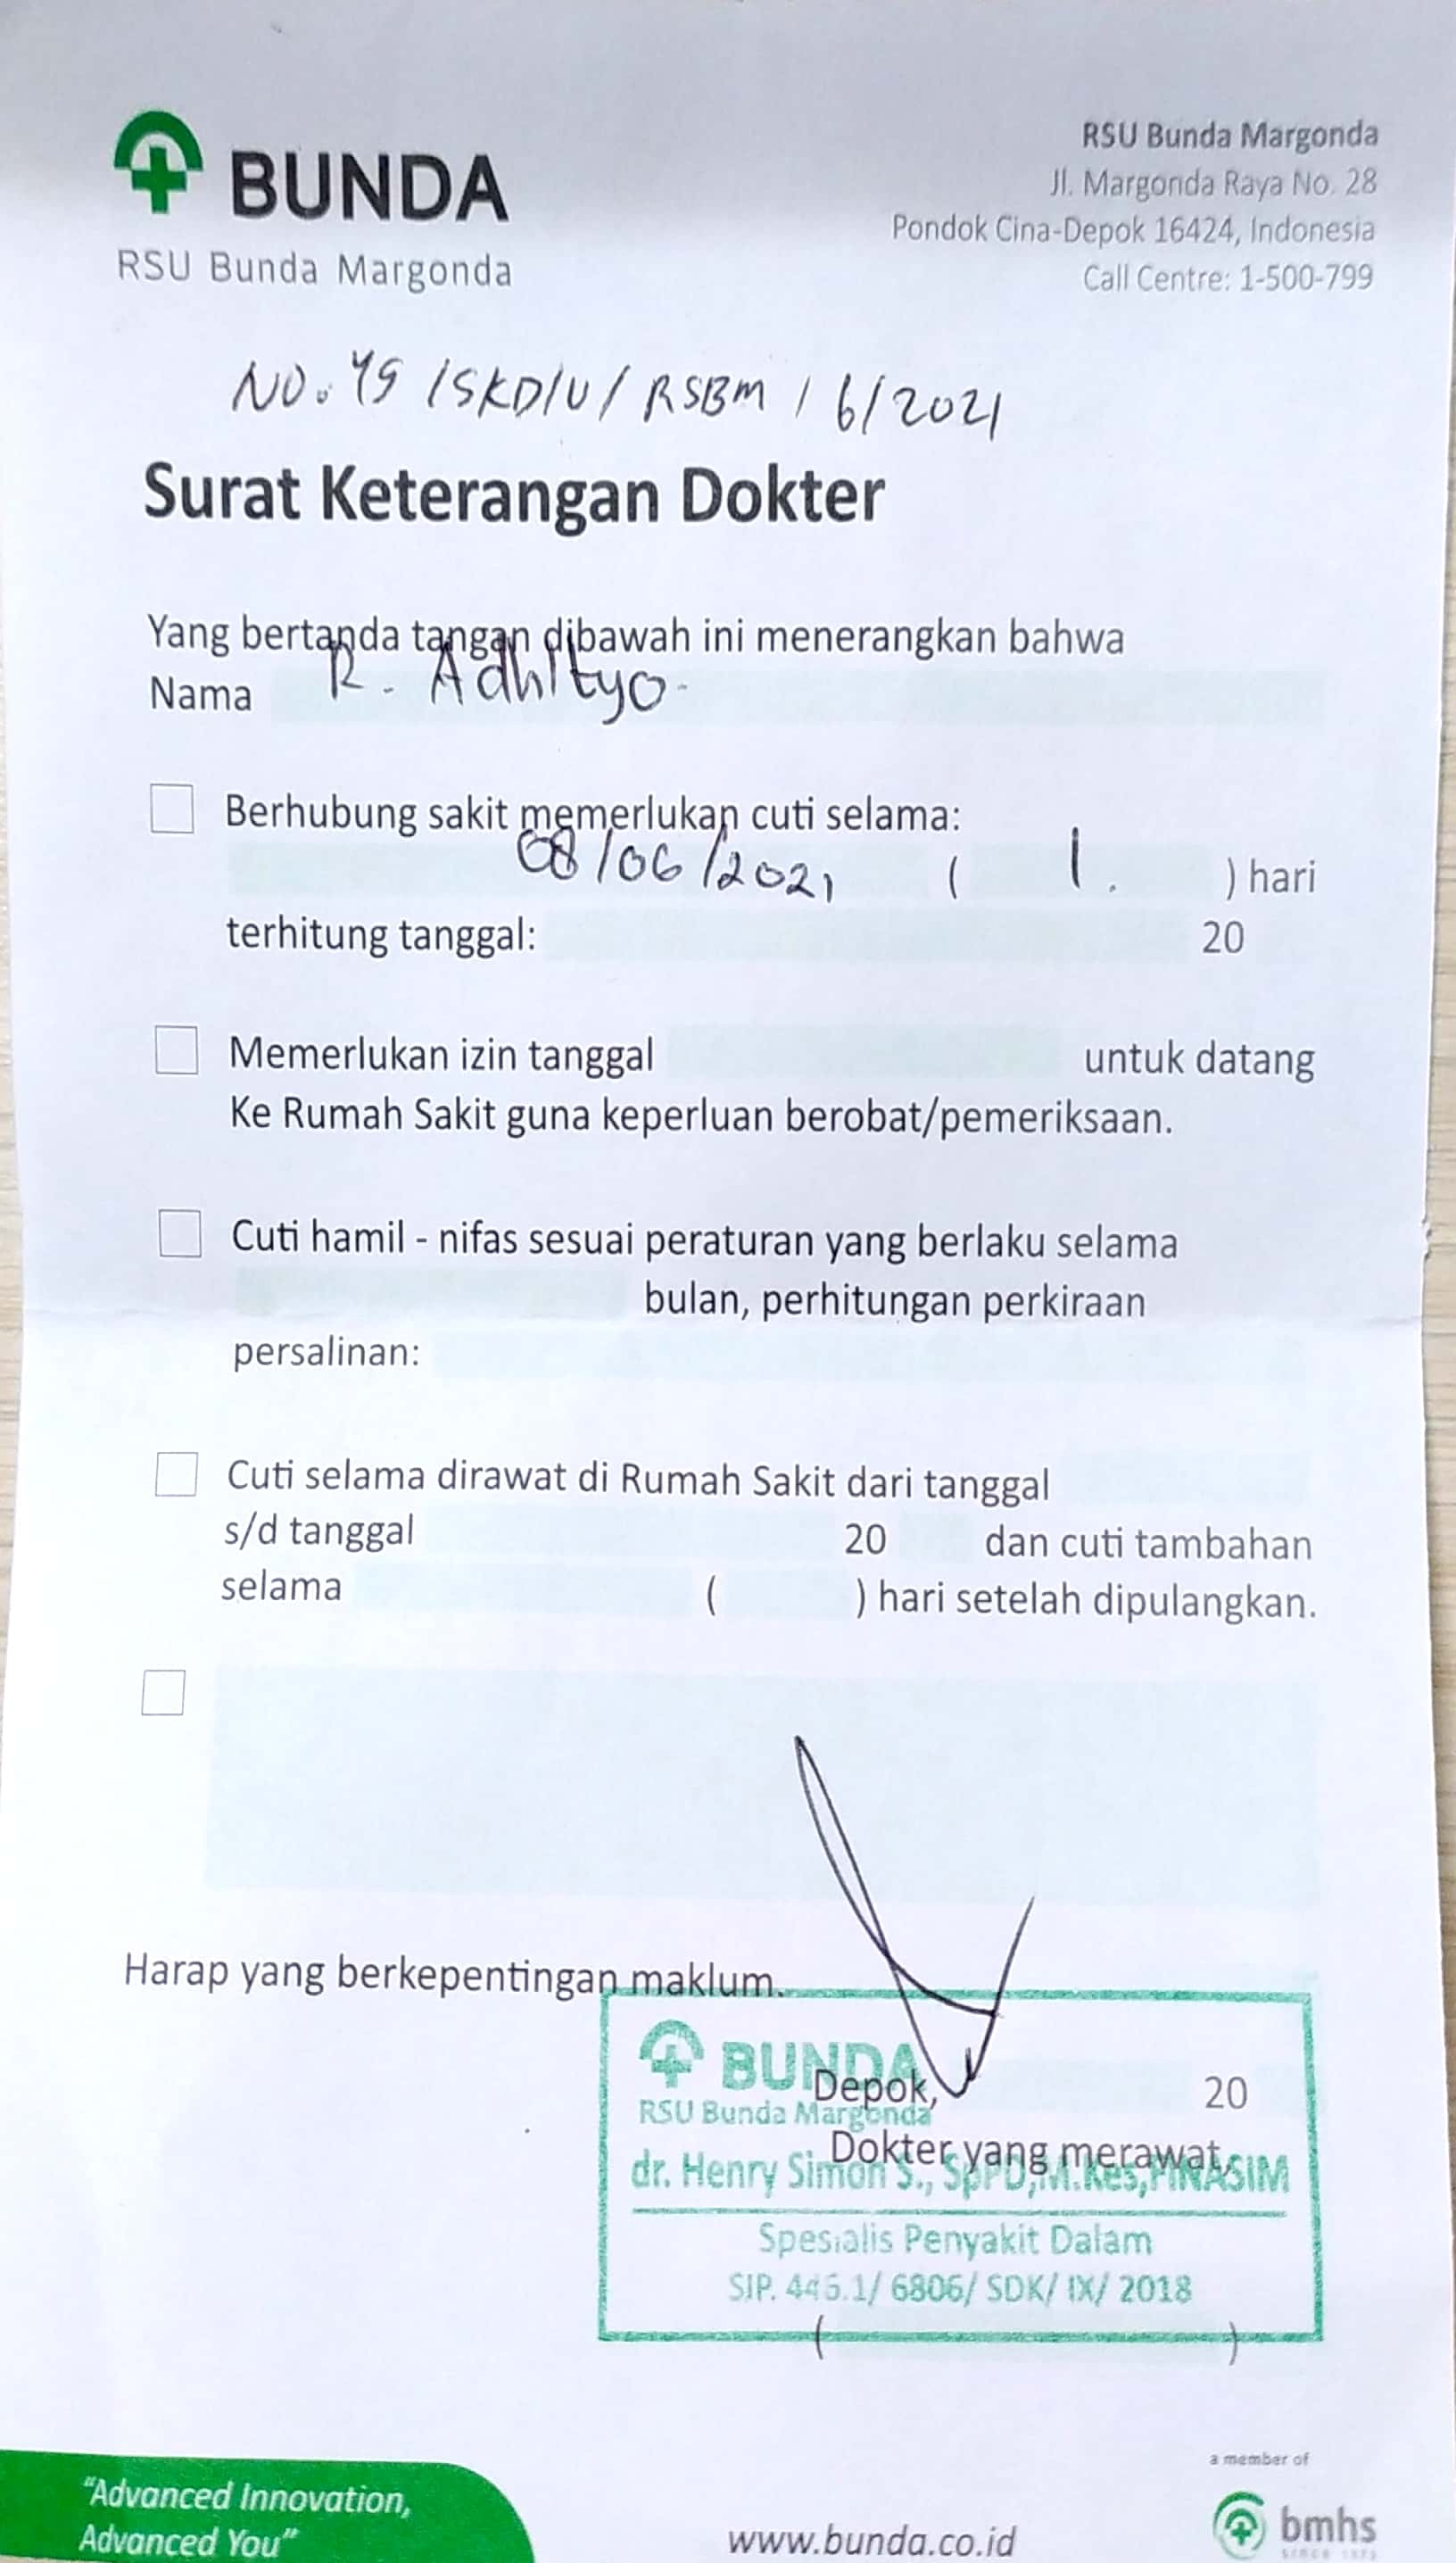 BUNDA
RSU Bunda Margonda
RSU Bunda Margonda
Jl. Margonda Raya No. 28
Pondok Cina-Depok 16424, Indonesia
Call Centre: 1-500-799
NO. 45 /SKD/U/ RSBM / 6/2021
Surat Keterangan Dokter
Yang bertanda tangan dibawah ini menerangkan bahwa
Nama R. Adhityo
Berhubung sakit memerlukan cuti selama:
08/06/2021 ( 1. ) hari
terhitung tanggal: 20
Memerlukan izin tanggal untuk datang
Ke Rumah Sakit guna keperluan berobat/pemeriksaan.
Cuti hamil - nifas sesuai peraturan yang berlaku selama
bulan, perhitungan perkiraan
persalinan:
Cuti selama dirawat di Rumah Sakit dari tanggal
s/d tanggal 20 dan cuti tambahan
selama ( ) hari setelah dipulangkan.
Harap yang berkepentingan maklum.
BUNDA
Depok, 20
RSU Bunda Margonda
Dokter yang merawat,
dr. Henry Simon S., SpPD,M.Kes,FINASIM
Spesialis Penyakit Dalam
SIP. 446.1/ 6806/ SDK/ IX/ 2018
( )
"Advanced Innovation,
Advanced You"
www.bunda.co.id
a member of
bmhs